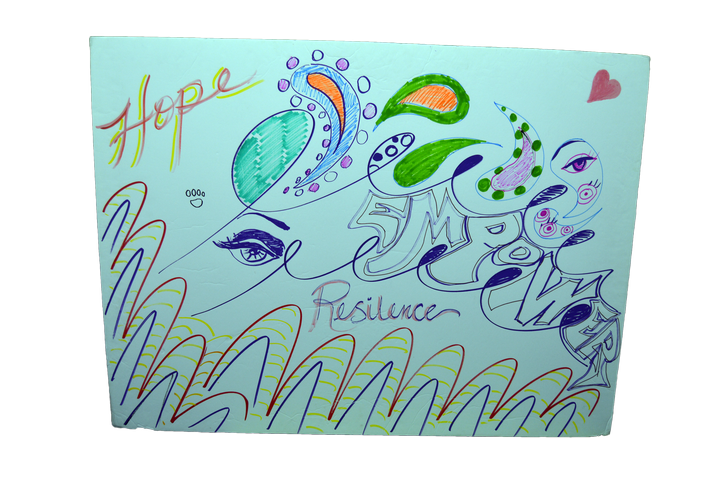 Hope
EMPOWER
Resilence